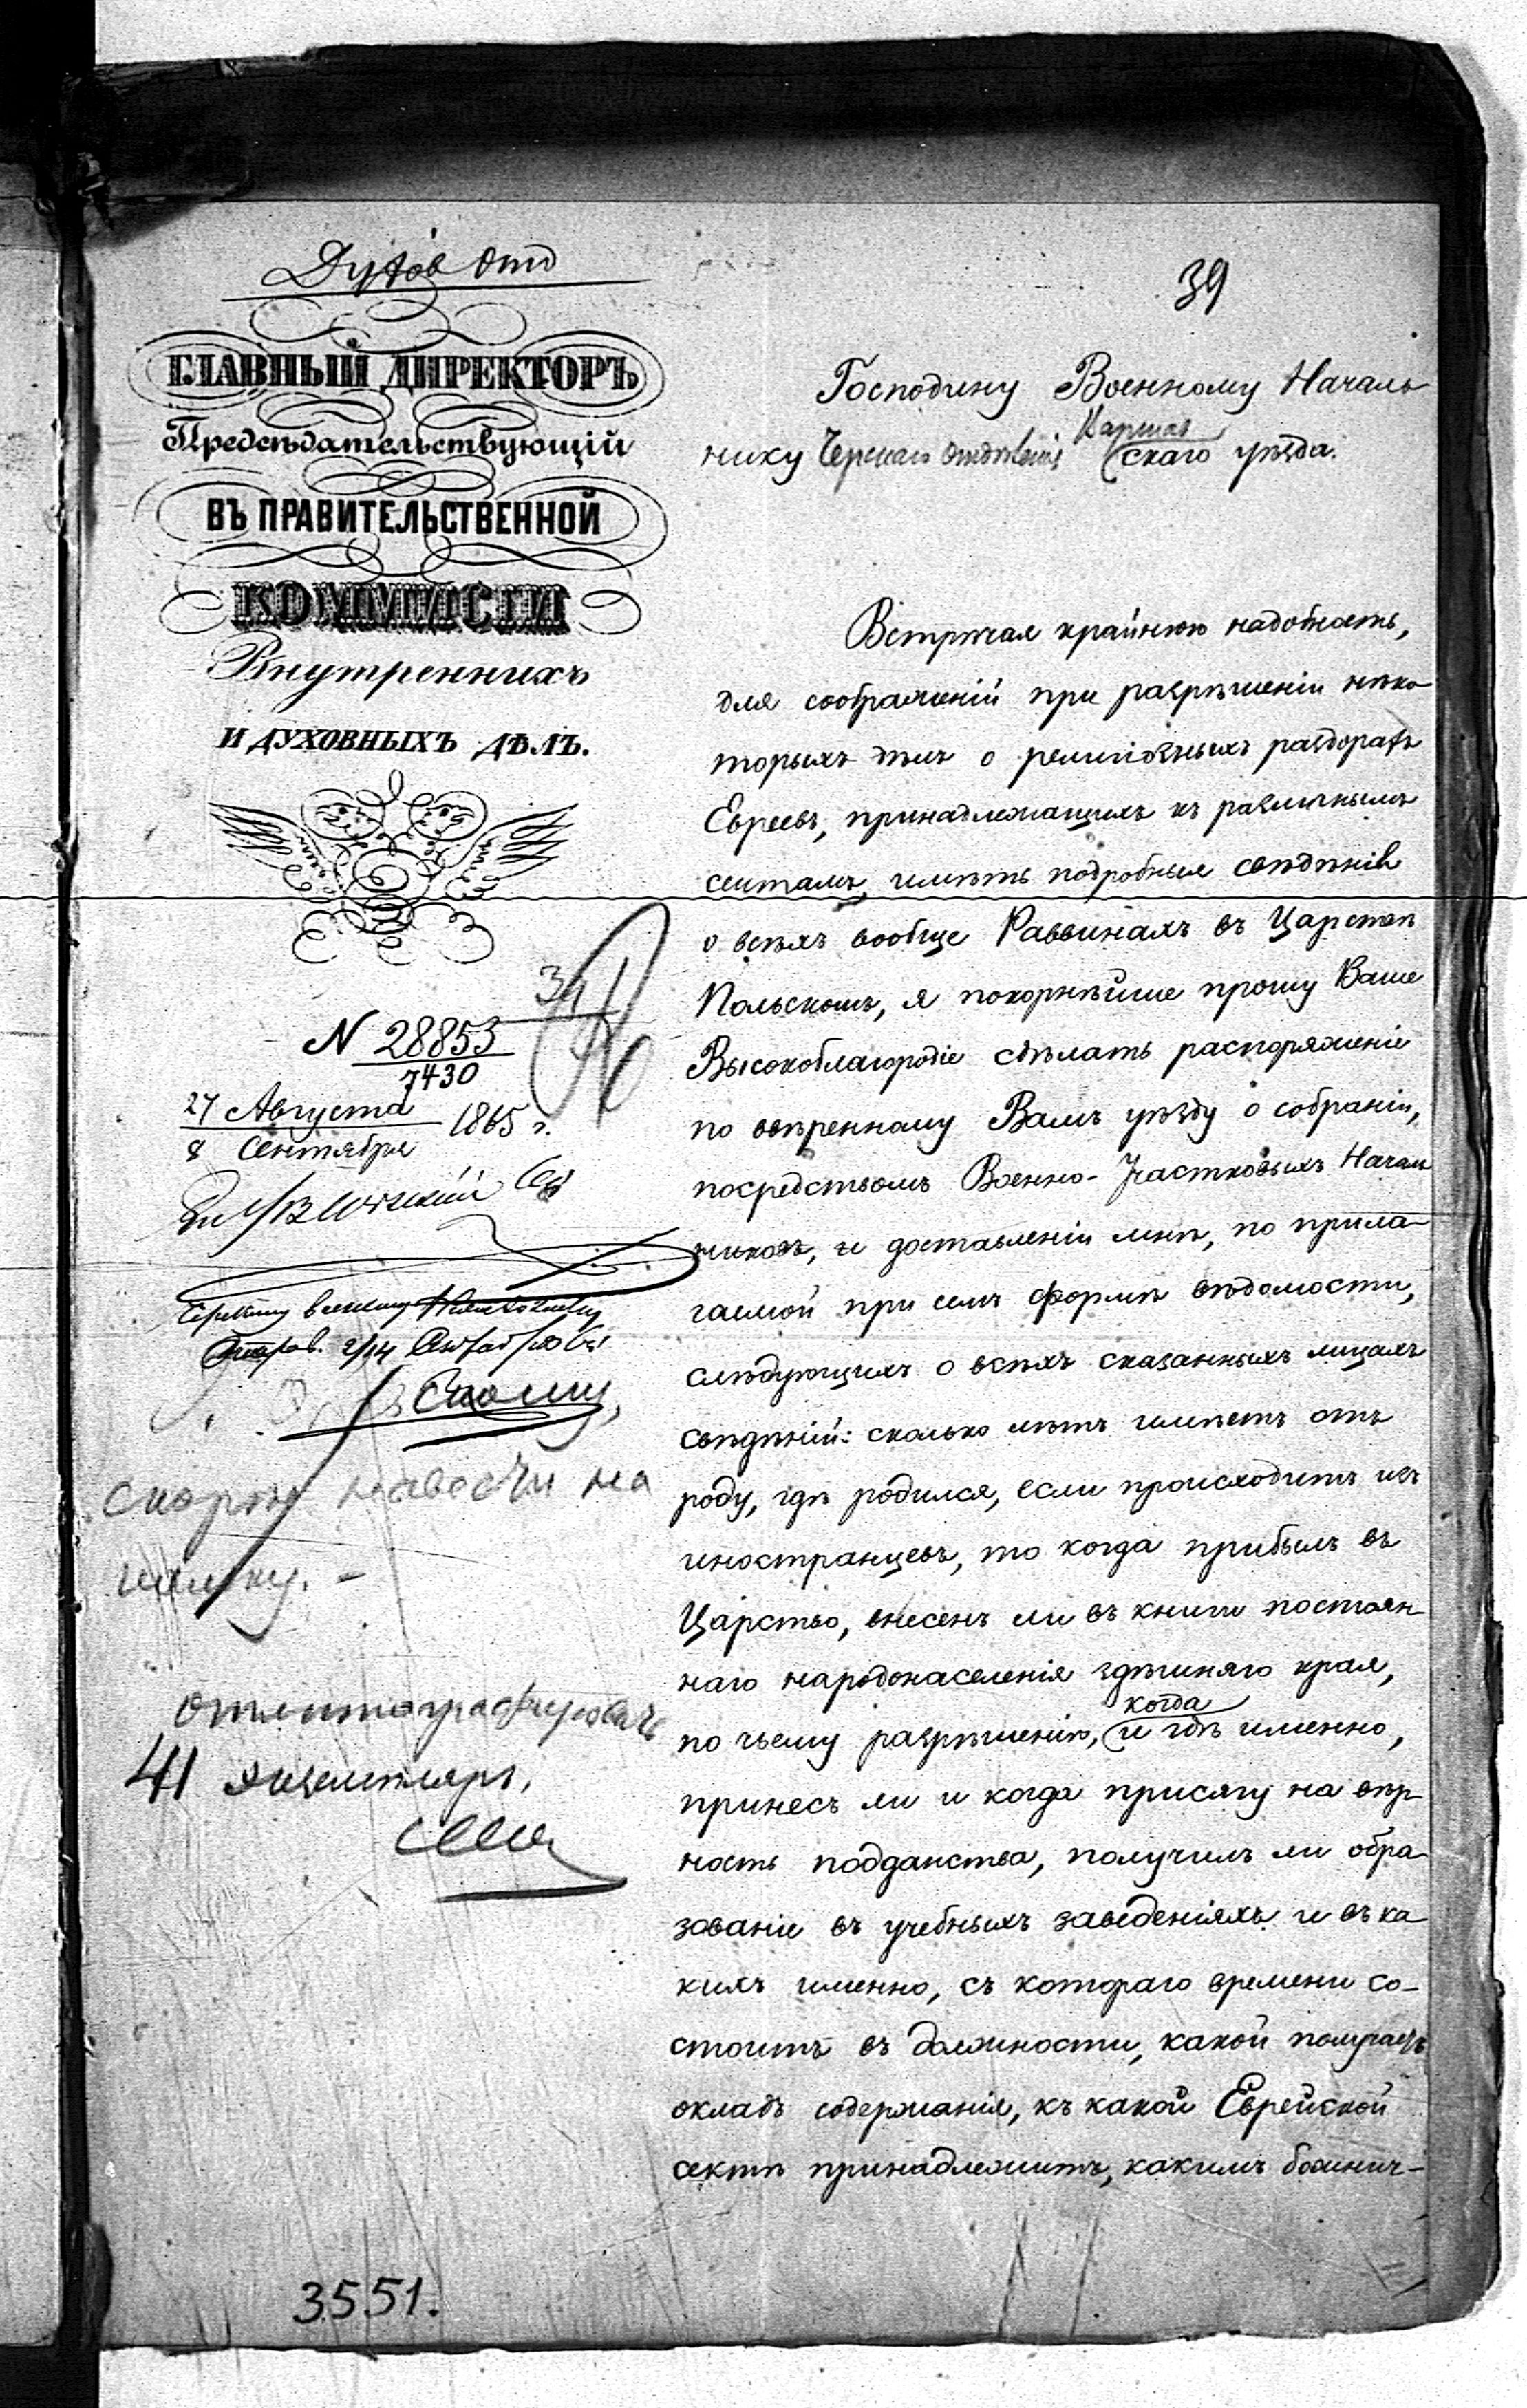 Духов Отд
39
ГЛАВНЫЙ ДИРЕКТОРЪ
Предсѣдательствующій
ВЪ ПРАВИТЕЛЬСТВЕННОЙ
КОММИСІИ
Внутреннихъ
И ДУХОВНЫХЪ ДѢЛЪ.
N 28853
7430
27 Августа
8 Сентября
1865 г.
скорѣе
на
отлитографировать
41 экземпляръ.
3551.
Господину Военному Началь
нику Черскаго Отдѣленія Варшав
скаго уѣзда.
Встрѣчая крайнюю надобность,
для соображеній при разрѣшеніи нѣко
торыхъ дѣлъ о религіозныхъ раздорахъ
Евреевъ, принадлежащихъ къ различнымъ
сектамъ, имѣть подробныя свѣдѣнія
о всѣхъ вообще Раввинахъ въ Царствѣ
Польскомъ, я покорнѣйше прошу Ваше
Высокоблагородіе сдѣлать распоряженіе
по ввѣренному Вамъ уѣзду о собраніи,
посредствомъ Военно-Участковыхъ Началь
никовъ, и доставленіи мнѣ, по прила-
гаемой при семъ формѣ вѣдомости,
слѣдующихъ о всѣхъ сказанныхъ лицахъ
свѣдѣній: сколько лѣтъ имѣетъ отъ
роду, гдѣ родился, если происходитъ изъ
иностранцевъ, то когда прибылъ въ
Царство, внесенъ ли въ книги постоян
наго народонаселенія здѣшняго края,
когда
по чьему разрѣшенію, и гдѣ именно,
принесъ ли и когда присягу на вѣр
ность подданства, получилъ ли обра
зованіе въ учебныхъ заведеніяхъ и въ ка
кихъ именно, съ котораго времени со-
стоитъ въ должности, какой получаетъ
окладъ содержанія, къ какой Еврейской
сектѣ принадлежитъ, какимъ божнич-